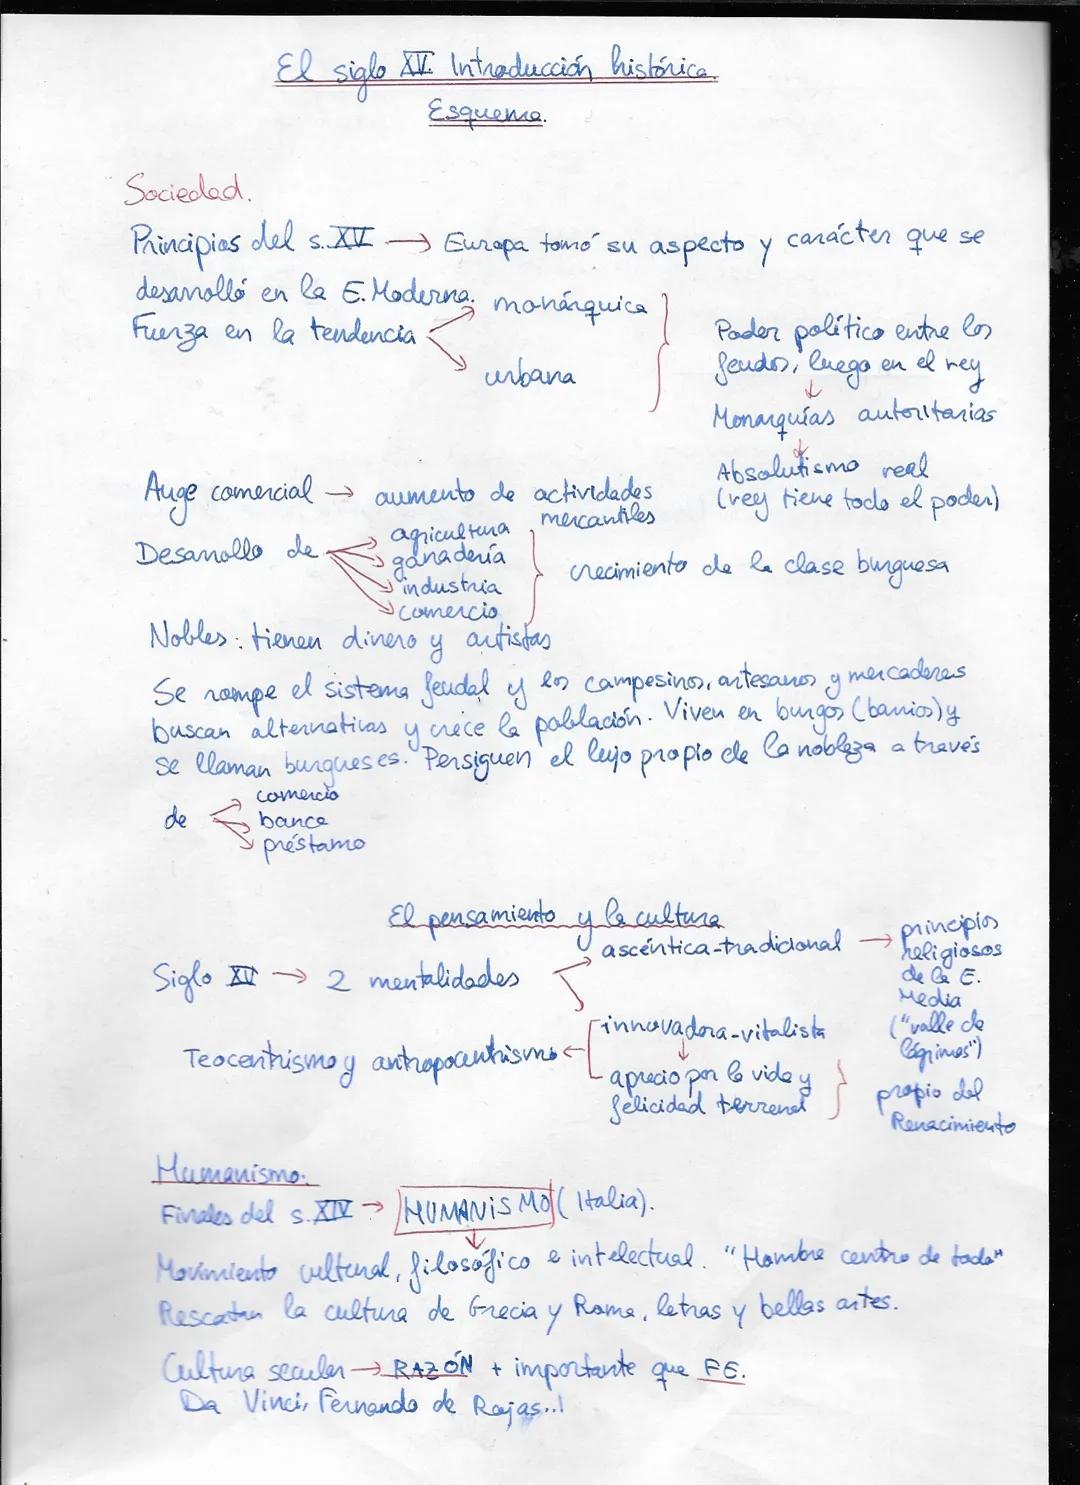 El siglo XV. Introducción histórica.
Esquema.
Sociedad.
Principios del s. XV → Europa tomó su aspecto y carácter que se
desarrolló en la E. Moderna.
Fuerza en la tendencia
monárquica
urbana
Poder político entre los
feudos, luego en el rey
↓
Monarquías autoritarias
↓
Absolutismo real
(rey tiene todo el poder)
Auge comercial → aumento de actividades
mercantiles
Desarrollo de
agricultura
ganadería
industria
comercio
crecimiento de la clase burguesa
Nobles: tienen dinero y artistas
Se rompe el sistema feudal y los campesinos, artesanos y mercaderes
buscan alternativas y crece la población. Viven en burgos (barrios) y
se llaman burgueses. Persiguen el lujo propio de la nobleza a través
de
comercio
banca
préstamo
El pensamiento y la cultura
Siglo XV → 2 mentalidades
ascéntica-tradicional →
principios
religiosos
de la E.
Media
("valle de
lágrimas")
innovadora-vitalista
↓
aprecio por la vida y
felicidad terrenal
propio del
Renacimiento
Teocentrismo y antropocentrismo ←
Humanismo.
Finales del s. XIV → HUMANISMO (Italia).
↓
Movimiento cultural, filosófico e intelectual. "Hombre centro de todo"
Rescatan la cultura de Grecia y Roma, letras y bellas artes.
Cultura secular → RAZÓN + importante que FE.
Da Vinci, Fernando de Rojas...